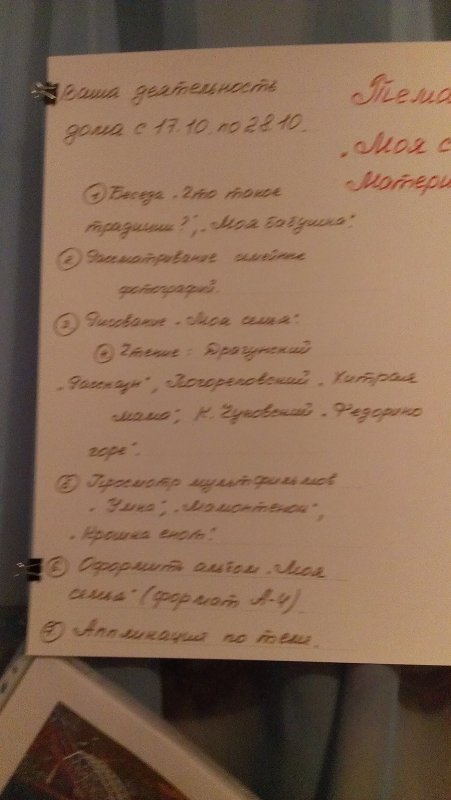 Ваша деятельность
дома с 17.10. по 28.10.
① Беседа „Что такое
традиции?“, „Моя бабушка“.
② Рассматривание семейных
фотографий.
③ Рисование „Моя семья“.
④ Чтение: Драгунский
„Рассказы“, Погореловский „Хитрая
мама“, К. Чуковский „Федорино
горе“.
⑤ Просмотр мультфильмов
„Умка“, „Мамонтенок“,
„Крошка енот“.
⑥ Оформить альбом „Моя
семья“ (формат А-4)
⑦ Аппликация по теме.
Тема
„Моя с
Матери